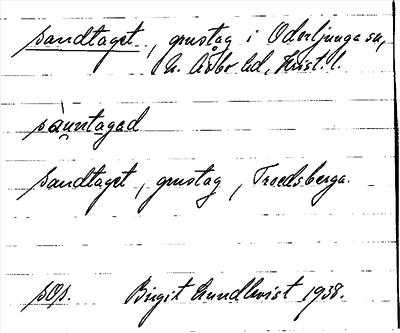 sandtaget, grustag i Oderljunga sn,
N. Åsbo hd, Krist. l.
sànntagad
sandtaget, grustag, Troedsberga.
sOp. Birgit Lundkvist 1938.